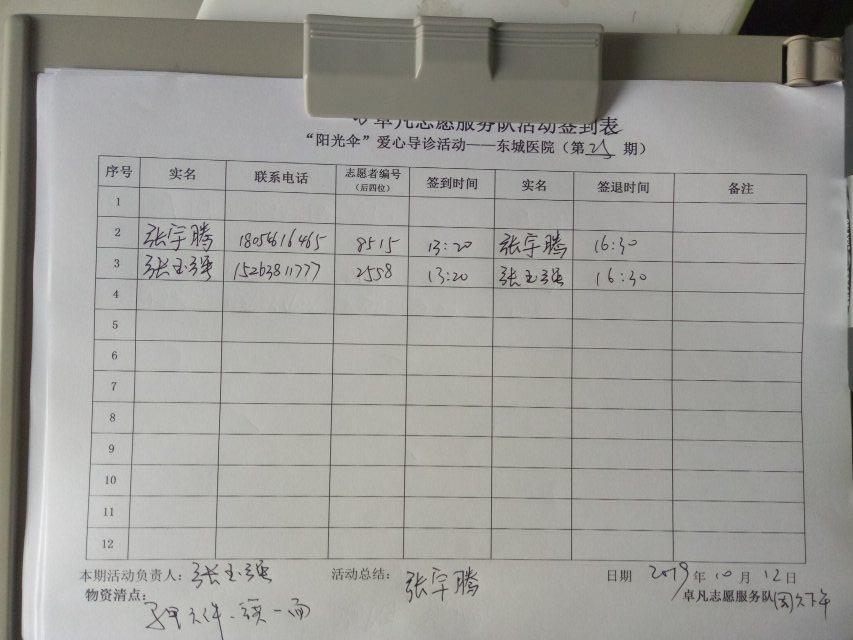 卓凡志愿服务队活动签到表
“阳光伞”爱心导诊活动——东城医院（第 期）
序号 实名 联系电话 志愿者编号（后四位） 签到时间 实名 签退时间 备注
1
2 张宇腾 18054616465 8515 13:20 张宇腾 16:30
3 张玉强 15263811777 2558 13:20 张玉强 16:30
4
5
6
7
8
9
10
11
12
本期活动负责人：张玉强 活动总结：张宇腾 日期 2019年10月12日
物资清点： 卓凡志愿服务队